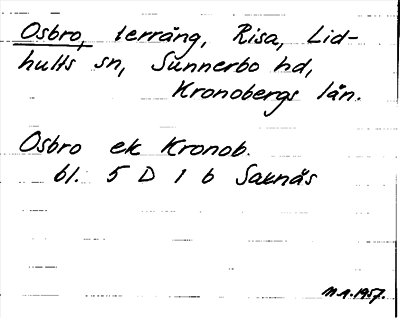 Osbro, terräng, Risa, Lid-
hults sn, Sunnerbo hd,
Kronobergs län.
Osbro ek Kronob.
bl. 5 D 1 b Saxnäs
1957.